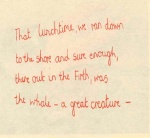 That lunchtime, we ran down
to the shore and sure enough,
there out in the Firth, was
the whale – a great creature –